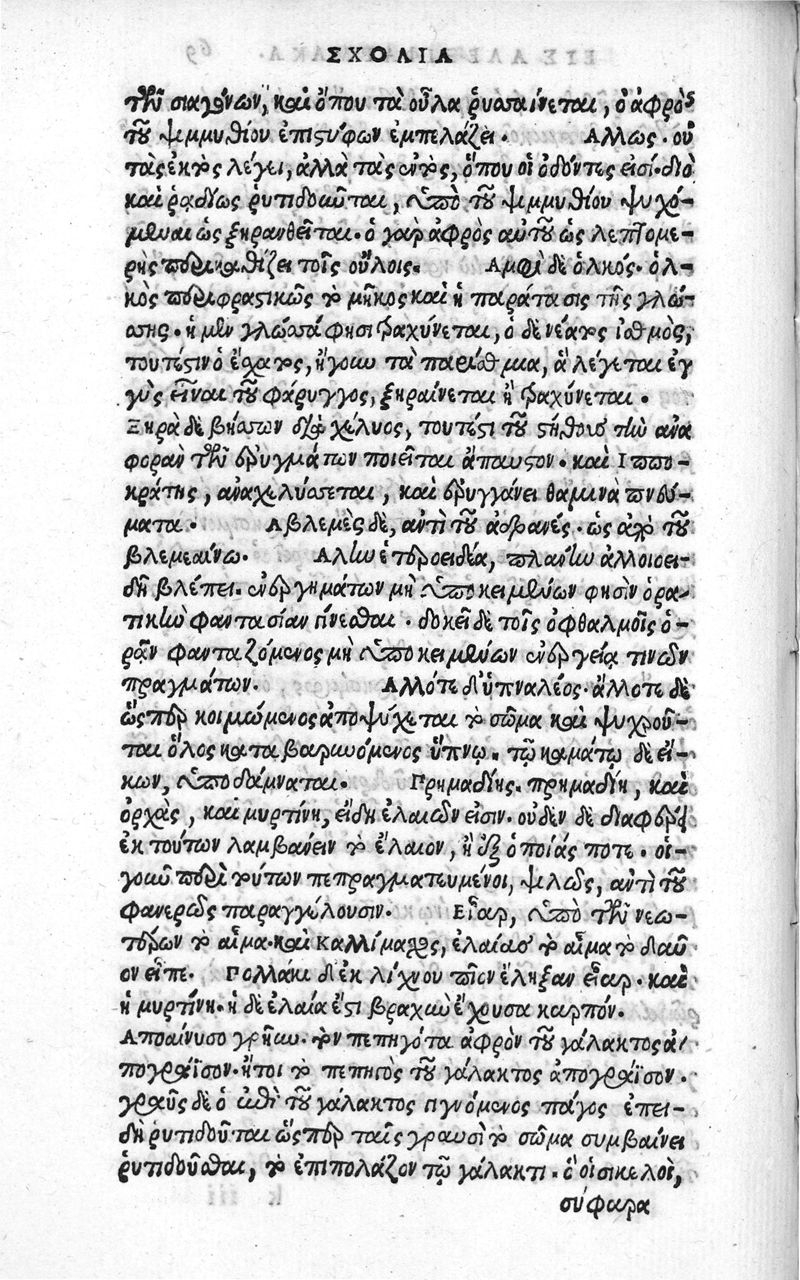 ΣΧΟΛΙΑ
τῶν σιαγόνων, καὶ ὅπου τὰ οὖλα ῥυσαίνεται, ὁ ἀφρὸς
τοῦ ψιμμυθίου ἐπιστύφων ἐμπελάζει. Ἄλλως. οὐ
τὰς ἐκτὸς λέγει, ἀλλὰ τὰς ἐντὸς, ὅπου οἱ ὀδόντες εἰσί. διὸ
καὶ ῥαδίως ῥυτιδοῦνται, ὑπὸ τοῦ ψιμμυθίου ψυχό-
μεναι ὡς ξηρανθεῖται. ὁ γὰρ ἀφρὸς αὐτοῦ ὡς λεπτομε-
ρὴς περικαθίζει τοῖς οὔλοις. Αμφὶ δὲ ὁλκός. ὁλ-
κὸς περιφραστικῶς τὸ μῆκος καὶ ἡ παράτασις τῆς γλώσ-
σης. ἡ μὲν γλῶσσά φησι τραχύνεται, ὁ δὲ νέατος ἰσθμὸς,
τουτέστιν ὁ ἔσχατος, ἤγουν τὰ παρίσθμια, ἃ λέγεται ἐγ
γὺς εἶναι τοῦ φάρυγγος, ξηραίνεται ἢ τραχύνεται.
Ξηρὰ δὲ βήσσων διὰ χέλυος, τουτέστι τοῦ στήθους τὴν ἀνα
φορὰν τῶν ἐρυγμάτων ποιεῖται ἄπαυστον. καὶ Ιππο-
κράτης, ἀναχελύσσεται, καὶ ἐρυγγάνει θαμινὰ πνεύ-
ματα. Αβλεμὲς δὲ, ἀντὶ τοῦ ἀσθενές. ὡς ἀπὸ τοῦ
βλεμεαίνω. Αλλην ἑτεροειδέα, πλανίω ἀλλοιοει-
δῆ βλέπει. ἐνεργημάτων μὴ ὑποκειμένων φησὶν ὁρα-
τικὴν φαντασίαν γίνεσθαι. δοκεῖ δὲ τοῖς ὀφθαλμοῖς ὁ-
ρᾶν φανταζόμενος μὴ ὑποκειμένων ἐνεργείᾳ τινῶν
πραγμάτων. Αλλότε δ' ὑπναλέος. ἄλλοτε δὲ
ὥσπερ κοιμώμενος ἀποψύχεται τὸ σῶμα καὶ ψυχροῦ-
ται ὅλος καταβαρυνόμενος ὕπνῳ. τῷ καμάτῳ δὲ εἴ-
κων, ὑποδάμναται. Πρημαδίης. πρημαδίη, καὶ
ὀρχὰς, καὶ μυρτίνη, εἴδη ἐλαιῶν εἰσιν. οὐδὲν δὲ διαφέρει
ἐκ τούτων λαμβάνειν τὸ ἔλαιον, ἢ ἐξ ὁποίας ποτε. οἱ-
γοῦν περὶ τούτων πεπραγματευμένοι, ψιλῶς, ἀντὶ τοῦ
φανερῶς παραγγέλουσιν. Εἶαρ, ὑπὸ τῶν νεω-
τέρων τὸ αἷμα. καὶ Καλλίμαχος, ἐλαίας τὸ αἷμα τὸ
ον εἶπε. Πολλάκι δ' ἐκ λύχνου πῖον ἔληξαν εἶαρ. καὶ
ἡ μυρτίνη. ἡ δὲ ἐλαία ἐστὶ βραχὺν ἔχουσα καρπόν.
Αποαίνυσο γρῆυν. τὸν πεπηγότα ἀφρὸν τοῦ γάλακτος ἀ-
πογράϊσον. ἤτοι τὸ πεπηγὸς τοῦ γάλακτος ἀπογράϊσον.
γραῦς δὲ ὁ ἐπὶ τοῦ γάλακτος γινόμενος πάγος ἐπει-
δὴ ῥυτιδοῦται ὥσπερ ταῖς γραυσὶ τὸ σῶμα συμβαίνει
ῥυτιδοῦσθαι, τὸ ἐπιπολάζον τῷ γάλακτι. ὃ οἱ σικελοὶ,
σύφαρα